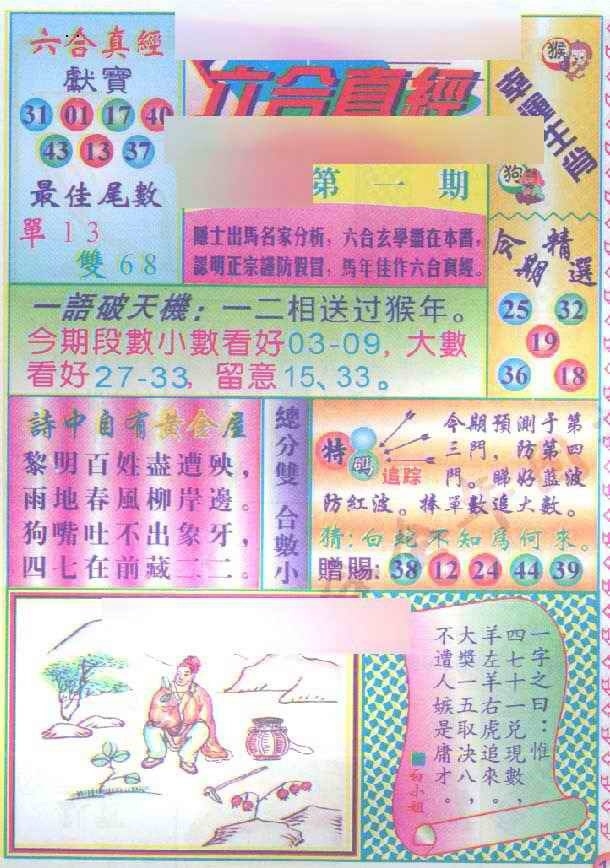 六合真經
獻寶
31 01 17 40
43 13 37
最佳尾數
單13
雙68
六合真經
第一期
隱士出馬名家分析,六合玄學盡在本冊,
認明正宗謹防假冒,馬年佳作六合真經。
猴
幸運生肖
狗
今期精選
25 32
19
36 18
一語破天機:一二相送过猴年。
今期段數小數看好03-09,大數
看好27-33,留意15、33。
詩中自有黃金屋
黎明百姓盡遭殃,
雨地春風柳岸邊。
狗嘴吐不出象牙,
四七在前藏二二。
總分雙 合數小
特碼
追踪
今期預測于第
三門,防第四
門。睇好藍波
防紅波。捧單數追大數。
猜:白蛇不知爲何來。
贈賜:38 12 24 44 39
一字之曰:惟
四七十一兑現數,
羊左羊右虎追來。
大獎一五取决八,
不遭人嫉是庸才。
白小姐